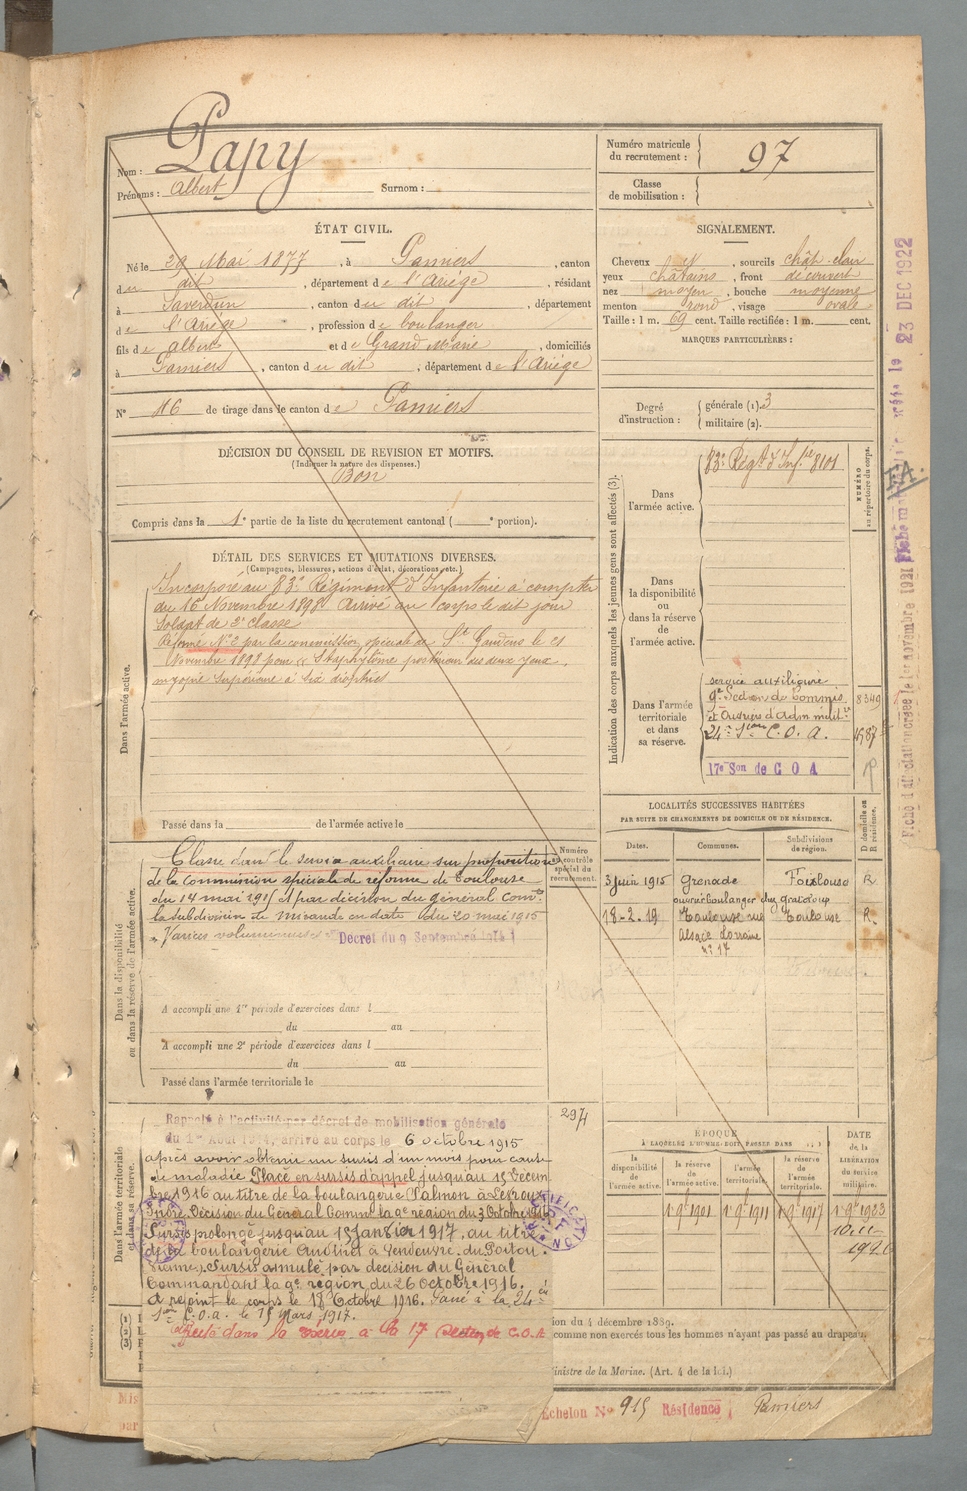 Nom : Papy
Prénoms : Albert Surnom :
Numéro matricule du recrutement : 97
Classe de mobilisation :
ÉTAT CIVIL.
Né le 29 Mai 1877, à Pamiers, canton
du dit, département de l'Ariège, résidant
à Saverdun, canton du dit, département
de l'Ariège, profession de boulanger
fils de Albert et de Grand Marie, domiciliés
à Pamiers, canton du dit, département de l'Ariège
N° 116 de tirage dans le canton de Pamiers
SIGNALEMENT.
Cheveux et, sourcils chât. clair
yeux châtains, front découvert
nez moyen, bouche moyenne
menton rond, visage ovale
Taille : 1 m. 69 cent. Taille rectifiée : 1 m. cent.
MARQUES PARTICULIÈRES :
Degré d'instruction : générale (1). 3
militaire (2).
DÉCISION DU CONSEIL DE REVISION ET MOTIFS.
(Indiquer la nature des dispenses.)
Bon
Compris dans la 1e partie de la liste du recrutement cantonal ( e portion).
DÉTAIL DES SERVICES ET MUTATIONS DIVERSES.
(Campagnes, blessures, actions d'éclat, décorations, etc.)
Dans l'armée active.
Incorporé au 83e Régiment d'Infanterie à compter
du 16 Novembre 1898 Arrivé au corps le dit jour
Soldat de 2e classe
Réformé N°2 par la commission spéciale de St Gaudens le 21
Novembre 1898 pour Staphylome postérieur des deux yeux,
myopie supérieure à six dioptries
Passé dans la de l'armée active le
Indication des corps auxquels les jeunes gens sont affectés (3).
NUMÉRO au répertoire du corps.
Dans l'armée active.
83e Régt d'Infie 8101
Dans la disponibilité ou dans la réserve de l'armée active.
Dans l'armée territoriale et dans sa réserve.
service auxiliaire
9e Section de Commis 8349
et Ouvriers d'Adm milit
24e Son C. O. A. 4587
17e Son de C O A
Dans la disponibilité ou dans la réserve de l'armée active.
Numéro au contrôle spécial du recrutement.
Classé dans le service auxiliaire sur proposition
de la commission spéciale de réforme de Toulouse
du 14 mai 1915 et par décision du général Comt
la subdivision de Mirande en date du 20 mai 1915
Varices volumineuses Décret du 9 Septembre 1914
A accompli une 1re période d'exercices dans l
du au
A accompli une 2e période d'exercices dans l
du au
Passé dans l'armée territoriale le
LOCALITÉS SUCCESSIVES HABITÉES
PAR SUITE DE CHANGEMENTS DE DOMICILE OU DE RÉSIDENCE.
Dates. Communes. Subdivisions de région. D domicile ou R résidence.
3 juin 1915 Grenade Toulouse R
ouvrier boulanger chez
18-2.19 Toulouse rue Toulouse R.
Alsace Lorraine
n° 17
Dans l'armée territoriale et dans sa réserve.
297
Rappelé à l'activité par décret de mobilisation générale
du 1er Août 1914, arrivé au corps le 6 octobre 1915
après avoir obtenu un sursis d'un mois pour cause
de maladie Placé en sursis d'appel jusqu'au 15 Décem
bre 1916 au titre de la boulangerie
Indre. Décision du Général Comm la 9e région du 3 Octobre 1916
Sursis prolongé jusqu'au 15 Janvier 1917, au titre
de la boulangerie à Vendeuvre du Poitou
Vienne). Sursis annulé par décision du Général
Commandant la 9e région, du 26 Octobre 1916.
A rejoint le corps le 18 Octobre 1916. Passé à la 24e
Son C.O.A. le 15 Mars 1917.
Affecté dans la réserve à la 17 Section de C.O.A
ÉPOQUE
À LAQUELLE L'HOMME DOIT PASSER DANS
la disponibilité de l'armée active. la réserve de l'armée active. l'armée territoriale. la réserve de l'armée territoriale. DATE de la LIBÉRATION du service militaire.
1er 9bre 1901 1er 9bre 1911 1er 9bre 1917 1er 9bre 1923
10-11-
1926
ion du 4 décembre 1889.
comme non exercés tous les hommes n'ayant pas passé au drapeau.
inistre de la Marine. (Art. 4 de la loi.)
Echelon N° 915 Résidence Pamiers
Fiche d'affectation créée le 1er novembre 1921
23 DEC 1922
F.A.